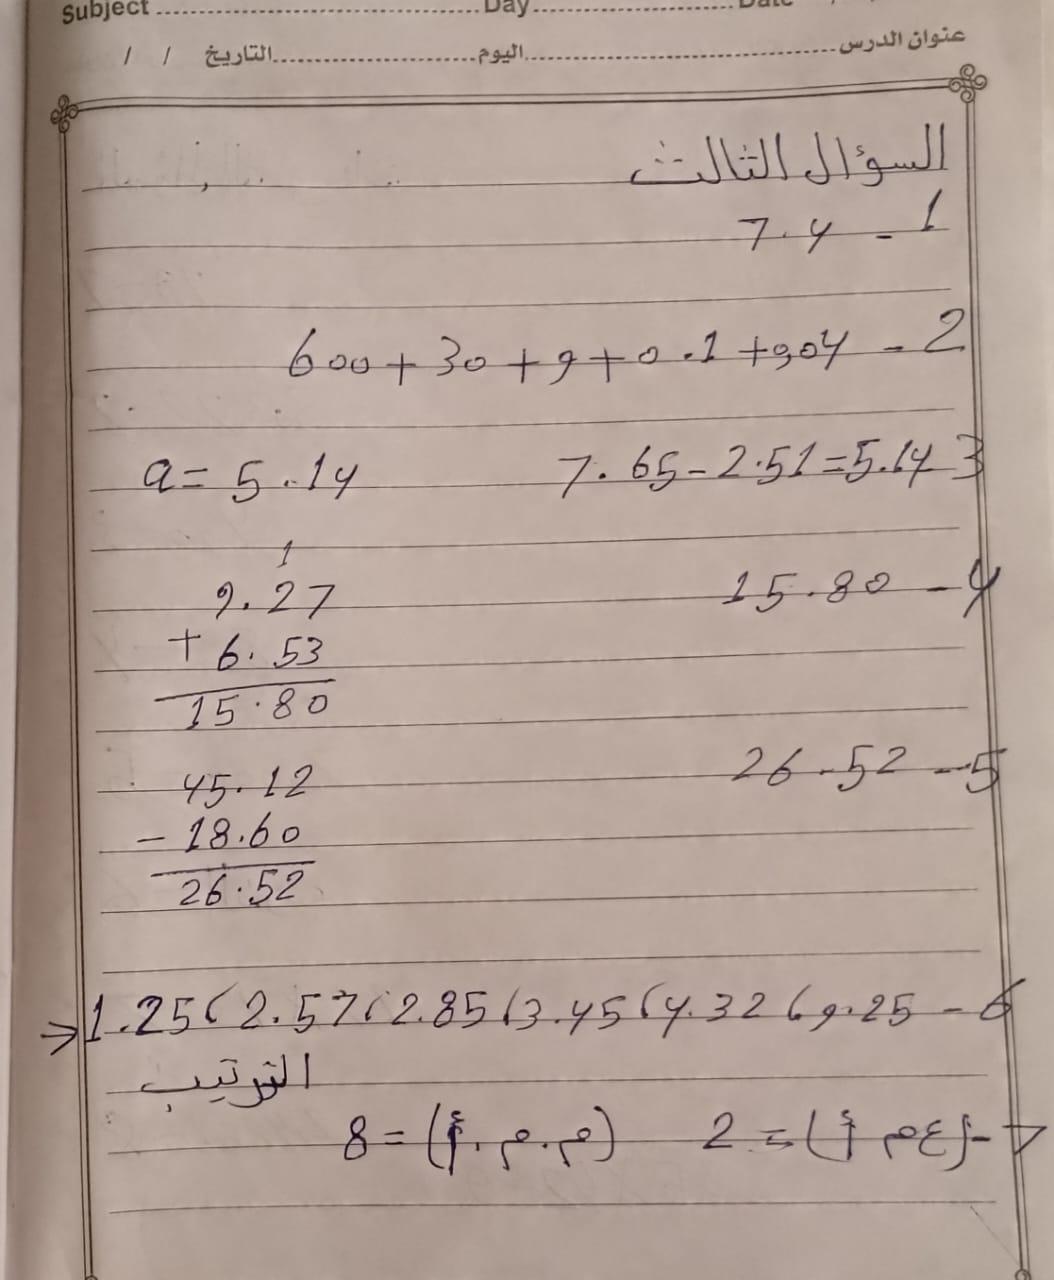 Subject ........ Day........ Date / /
عنوان الدرس ........ اليوم ........ التاريخ / /
السؤال الثالث
1 - 7.4
2 - 600 + 30 + 9 + 0.1 + 0.04
3 7.65 - 2.51 = 5.14 a = 5.14
4 - 15.80
1
9.27
+ 6.53
15.80
5 - 26.52
45.12
- 18.60
26.52
6 - 9.25 ( 4.32 ( 3.45 ( 2.85 ( 2.57 ( 1.25 →
الترتيب
7 - (ع م أ) = 2 (م.م.أ) = 8